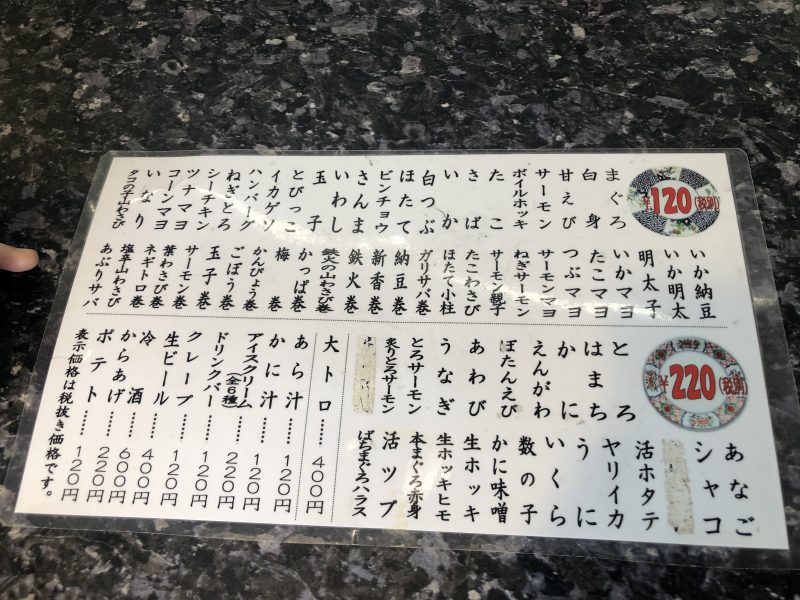 ¥120(税別)
まぐろ
白身
甘えび
サーモン
ボイルホッキ
たこ
さば
いか
白つぶ
ほたて
ビンチョウ
さんま
いわし
玉子
とびっこ
イカゲソ
ハンバーグ
ねぎとろ
シーチキン
ツナマヨ
コーンマヨ
いなり
タコの子山わさび
いか納豆
いか明太
明太子
いかマヨ
たこマヨ
つぶマヨ
サーモンマヨ
ねぎサーモン
サーモン親子
たこわさび
ほたて小柱
ガリサバ巻
納豆巻
新香巻
鉄火巻
鉄火の山わさび巻
かっぱ巻
梅巻
かんぴょう巻
ごぼう巻
玉子巻
サーモン巻
葉わさび巻
ネギトロ巻
塩辛山わさび
あぶりサバ
¥220(税別)
とろ
はまち
かに
えんがわ
ぼたんえび
あわび
うなぎ
とろサーモン
炙りとろサーモン
あなご
シャコ
活ホタテ
ヤリイカ
うに
いくら
数の子
かに味噌
生ホッキ
生ホッキヒモ
本まぐろ赤身
活ツブ
ばちまぐろハラス
大トロ……400円
あら汁……120円
かに汁……120円
アイスクリーム(全6種)…220円
ドリンクバー……120円
クレープ……120円
生ビール……400円
冷酒……600円
からあげ……220円
ポテト……120円
表示価格は税抜き価格です。